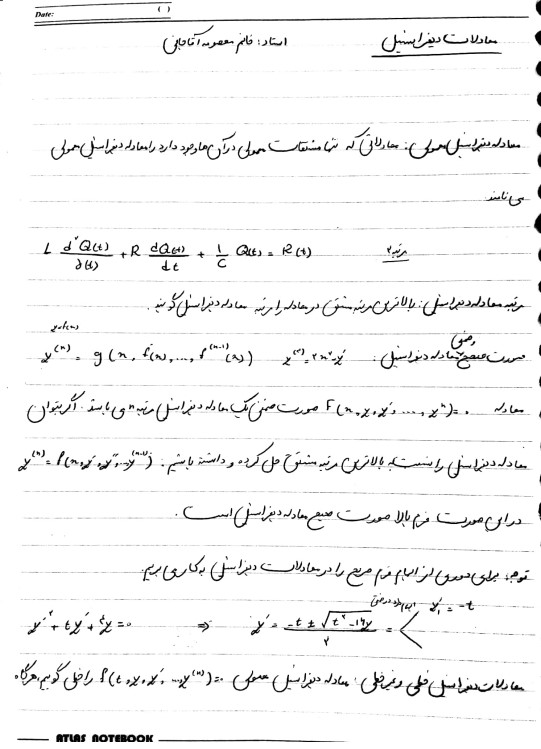 Date: ( )
معادلات دیفرانسیل استاد: خانم معصومه آقاجانی
معادله دیفرانسیل معمولی: معادلاتی که تنها مشتقات معمولی در آن ها وجود دارد را معادله دیفرانسیل معمولی
می نامند
L d²Q(t)/d(t) + R dQ(t)/dt + 1/C Q(t) = R(t) مرتبه ۲
مرتبه معادله دیفرانسیل: بالاترین مرتبه مشتق در معادله را مرتبه معادله دیفرانسیل گویند.
صورت صریح معادله دیفرانسیل: y⁽ⁿ⁾ = g(x, f(x), ..., f⁽ⁿ⁻¹⁾(x))
معادله F(x, y, y', ..., yⁿ) = ۰ صورت ضمنی یک معادله دیفرانسیل مرتبه n می باشد. اگر بتوان
معادله دیفرانسیل را نسبت به بالاترین مرتبه مشتق حل کرده و داشته باشیم: y⁽ⁿ⁾ = f(x, y, y', ... y⁽ⁿ⁻¹⁾)
در این صورت فرم بالا صورت صریح معادله دیفرانسیل است.
توجه: برای دوری از ابهام فرم صریح را در معادلات دیفرانسیل به کار می بریم.
y'² + ty' + ۴y = ۰ ⇒ y' = (-t ± √(t² - ۱۶y))/۲ = < y'₁ = -t
معادلات دیفرانسیل خطی و غیر خطی: معادله دیفرانسیل معمولی f(t, y, y', ... y⁽ⁿ⁾) = ۰ را خطی گوییم هرگاه
ATLAS NOTEBOOK